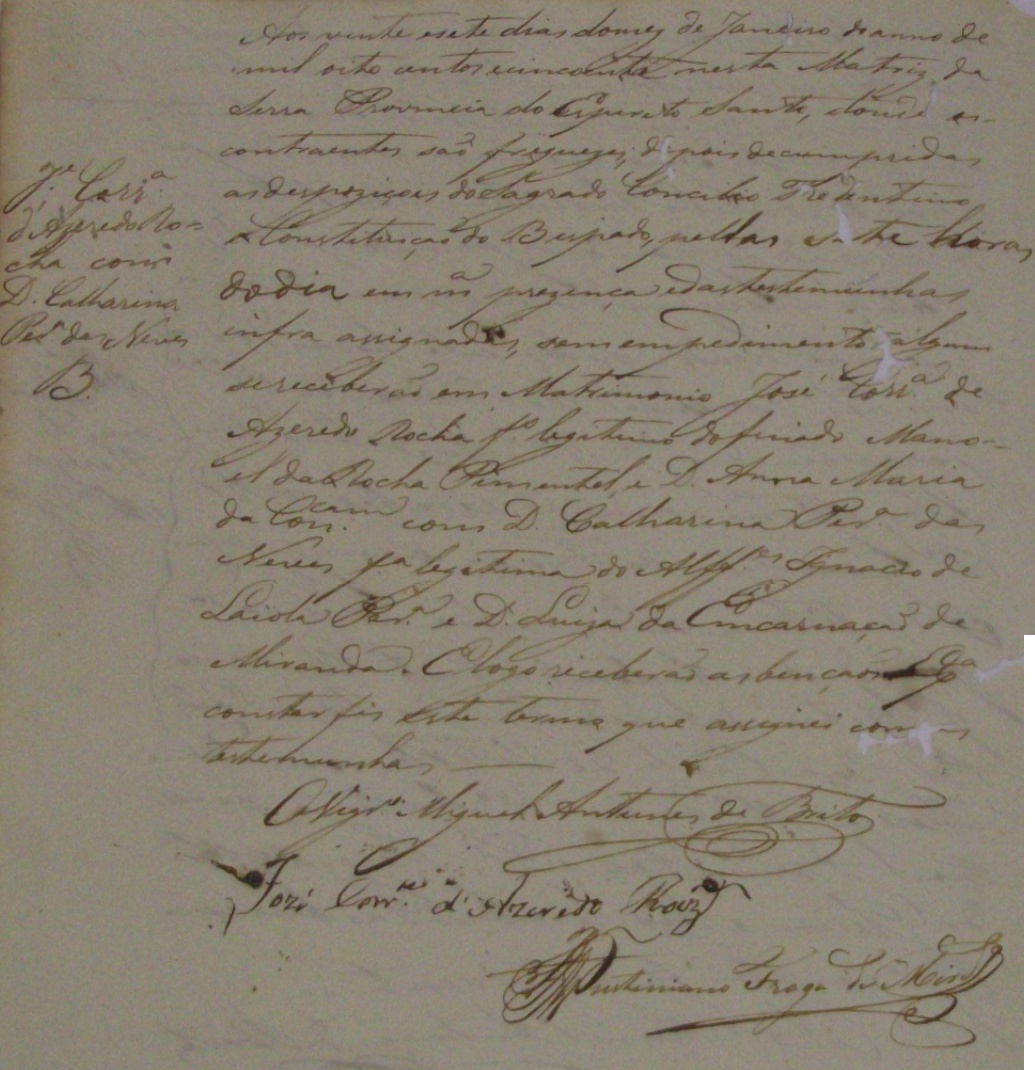 Jᵉ Corrᵃ
d'Azeredo Ro-
cha com
D. Catharina
Perᵃ das Neves
B.
Aos vinte esete dias domez de Janeiro do anno de
mil oito centos ecincoenta nesta Matriz da
Serra Provincia do Espirito Santo, donde os
contraentes saõ freguezes, depois decumpridas
as despoziçoes do Sagrado Concilio Tredentino
e Constituiçaõ do Bispado, pellas sete horas
do dia em mᵃ prezença edastestemunhas
infra assignadas, sem empedimento algum
se receberaõ em Matrimonio José Corrᵃ de
Azeredo Rocha fᵒ legitimo dofinado Mano-
el da Rocha Pimentel, e D. Anna Maria
da Concᵃᵐ com D. Catharina Perᵃ das
Neves fᵃ legitima do Alffᵉˢ Ignacio de
Laiola Perᵃ e D. Luiza da Encarnaçaõ de
Miranda. E logo receberaõ as bençaons Epᵃ
constar fis este termo que assignei com as
testemunhas
O Vigrᵒ Miguel Antunes de Brito
Jozé Corrᵃ d'Azeredo
Justiniano Fraga de